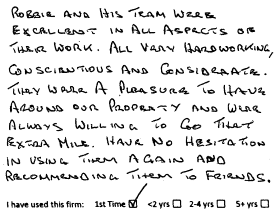 ROBBIE AND HIS TEAM WERE
EXCELLENT IN ALL ASPECTS OF
THEIR WORK. ALL VARY HARDWORKING,
CONSCIENTIOUS AND CONSIDERATE.
THEY WERE A PLEASURE TO HAVE
AROUND OUR PROPERTY AND WERE
ALWAYS WILLING TO GO THAT
EXTRA MILE. HAVE NO HESITATION
IN USING THEM AGAIN AND
RECOMMENDING THEM TO FRIENDS.
I have used this firm: 1st Time ☑ <2 yrs ☐ 2-4 yrs ☐ 5+ yrs ☐